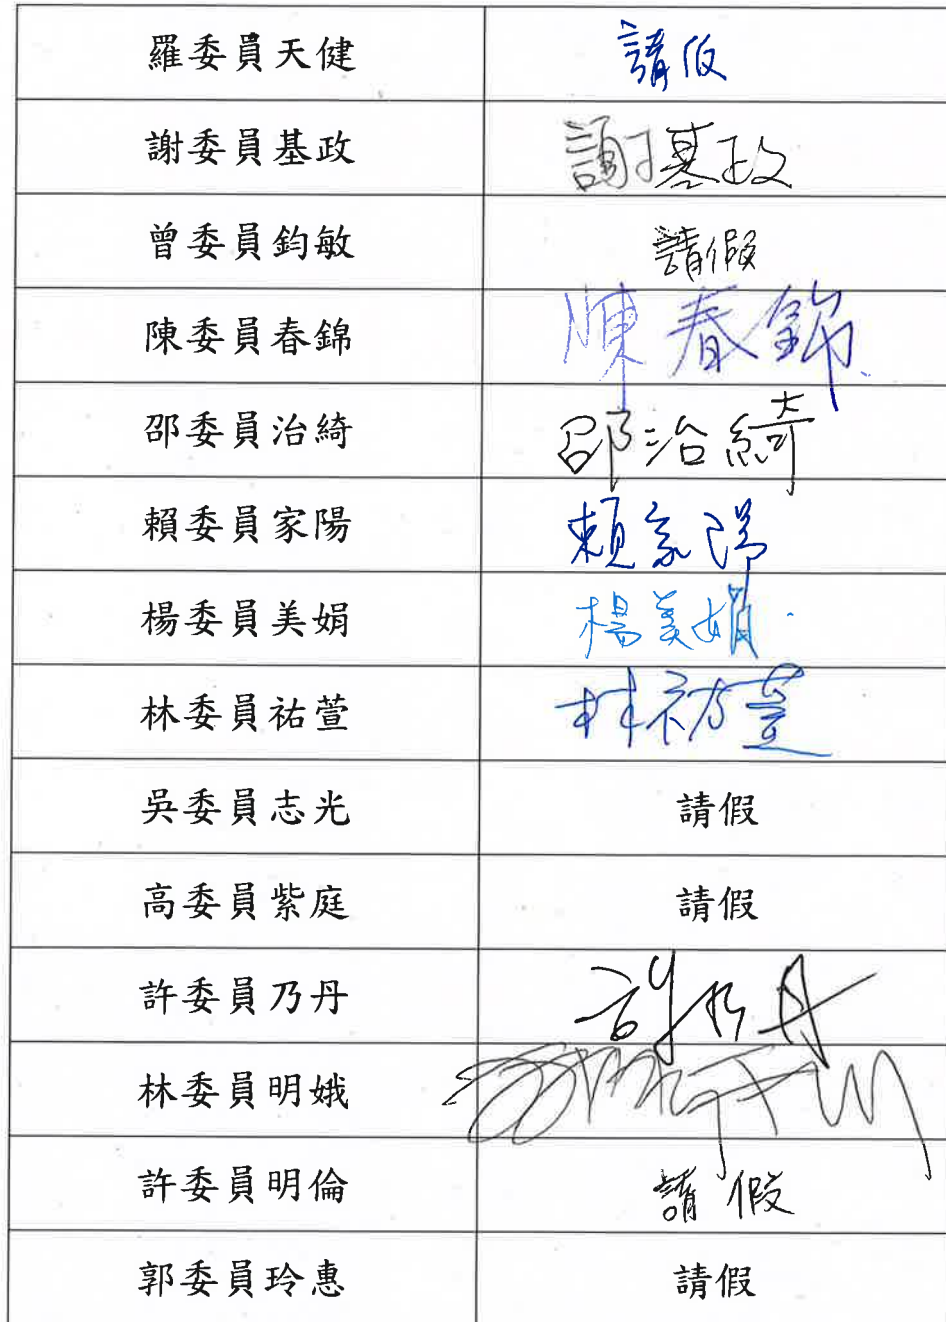 羅委員天健 請假
謝委員基政 謝基政
曾委員鈞敏 請假
陳委員春錦 陳春錦
邵委員治綺 邵治綺
賴委員家陽 賴家陽
楊委員美娟 楊美娟
林委員祐萱 林祐萱
吳委員志光 請假
高委員紫庭 請假
許委員乃丹 許乃丹
林委員明娥
許委員明倫 請假
郭委員玲惠 請假